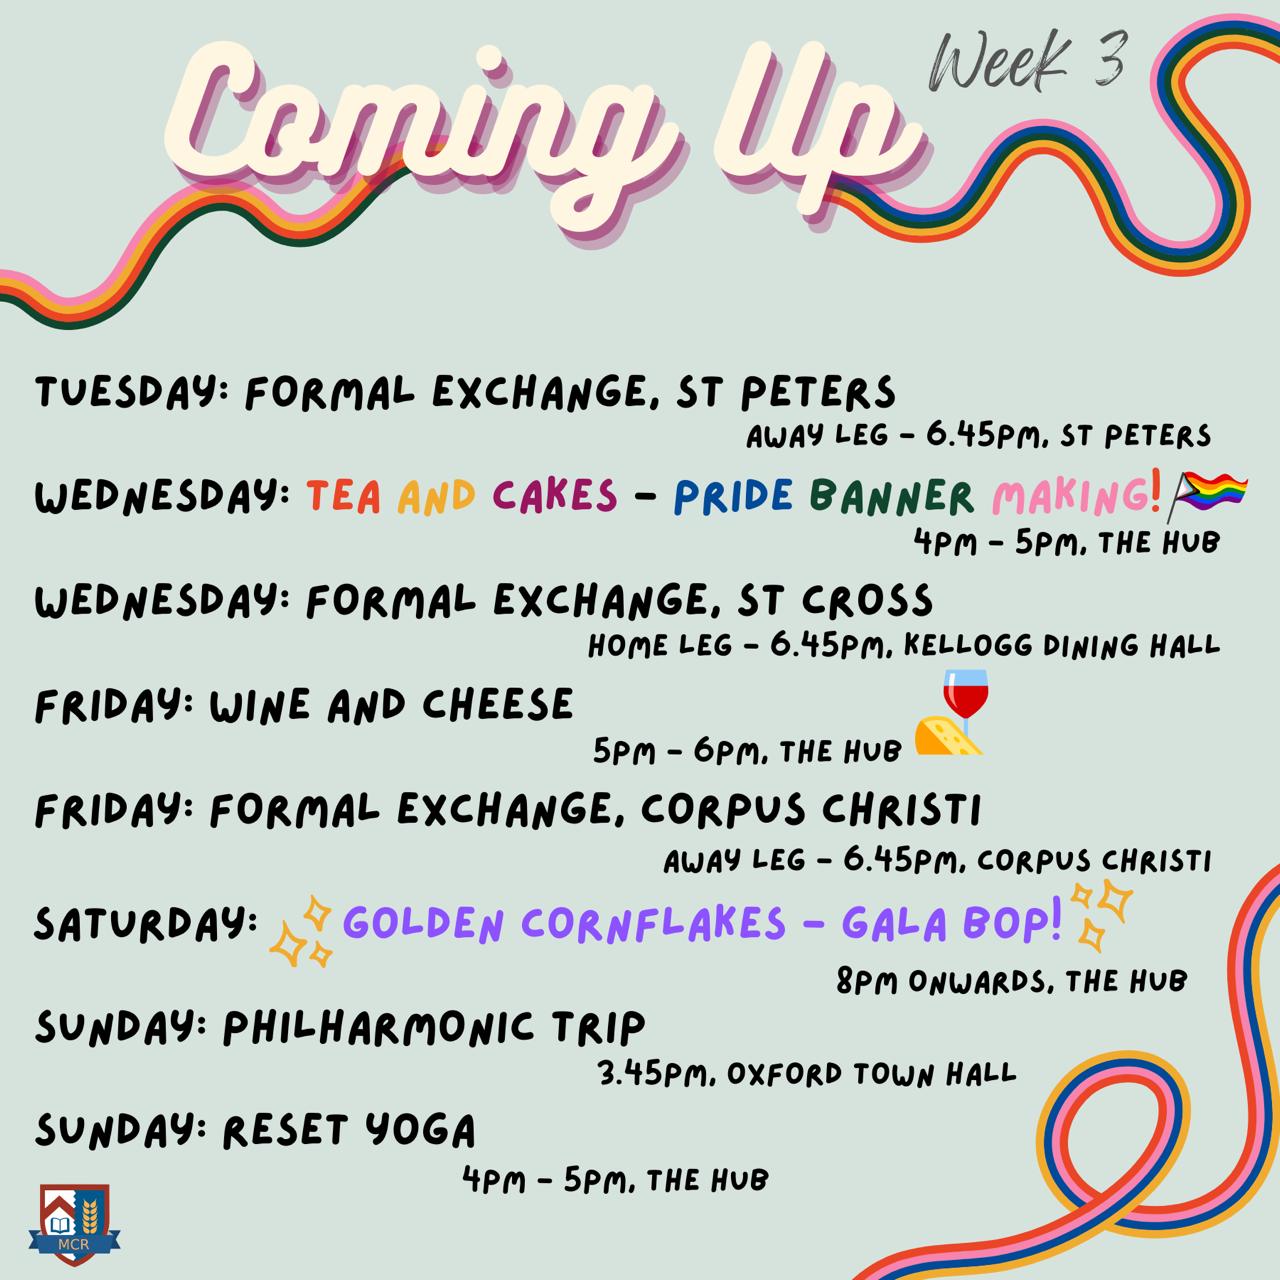 Coming Up
Week 3
TUESDAY: FORMAL EXCHANGE, ST PETERS
AWAY LEG - 6.45PM, ST PETERS
WEDNESDAY: TEA AND CAKES - PRIDE BANNER MAKING!
4PM - 5PM, THE HUB
WEDNESDAY: FORMAL EXCHANGE, ST CROSS
HOME LEG - 6.45PM, KELLOGG DINING HALL
FRIDAY: WINE AND CHEESE
5PM - 6PM, THE HUB
FRIDAY: FORMAL EXCHANGE, CORPUS CHRISTI
AWAY LEG - 6.45PM, CORPUS CHRISTI
SATURDAY: GOLDEN CORNFLAKES - GALA BOP!
8PM ONWARDS, THE HUB
SUNDAY: PHILHARMONIC TRIP
3.45PM, OXFORD TOWN HALL
SUNDAY: RESET YOGA
4PM - 5PM, THE HUB
MCR